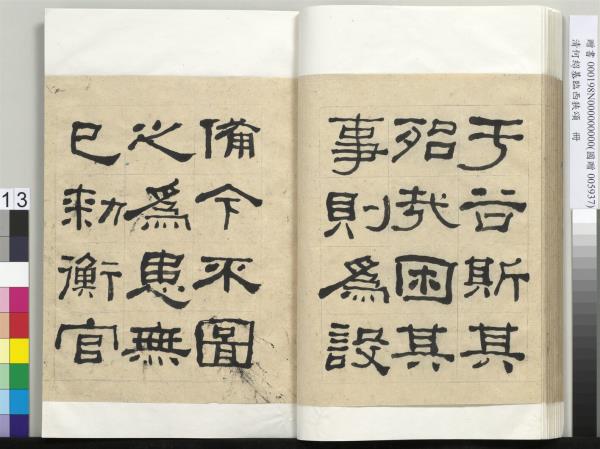 于谷斯其
殆哉困其
事則爲設
備今不圖
之爲患無
已勅衡官
贈書 000198N000000000(國贈 005937)
清何紹基臨西狹頌 冊
13